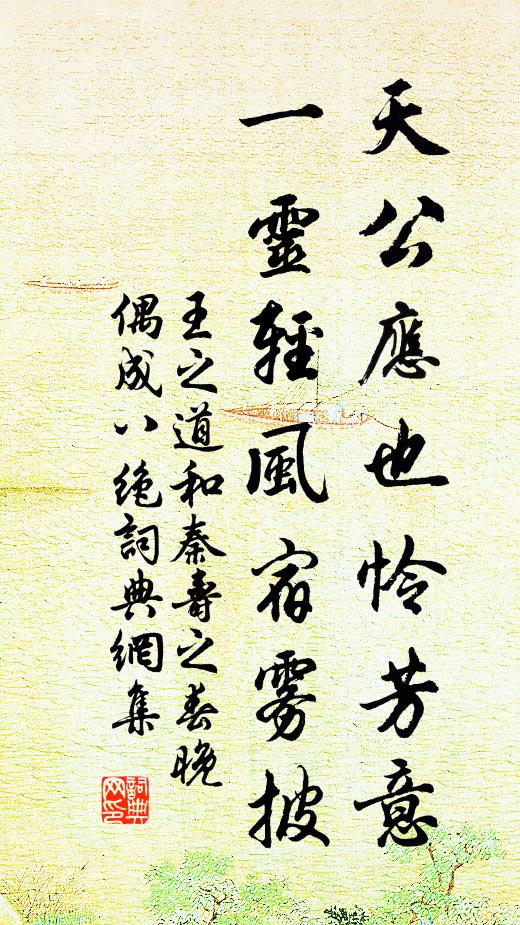 天公應也怜芳意
一霎輕風宿雾披
王之道和秦壽之春晚
偶成八绝詞典網集
詞典网印